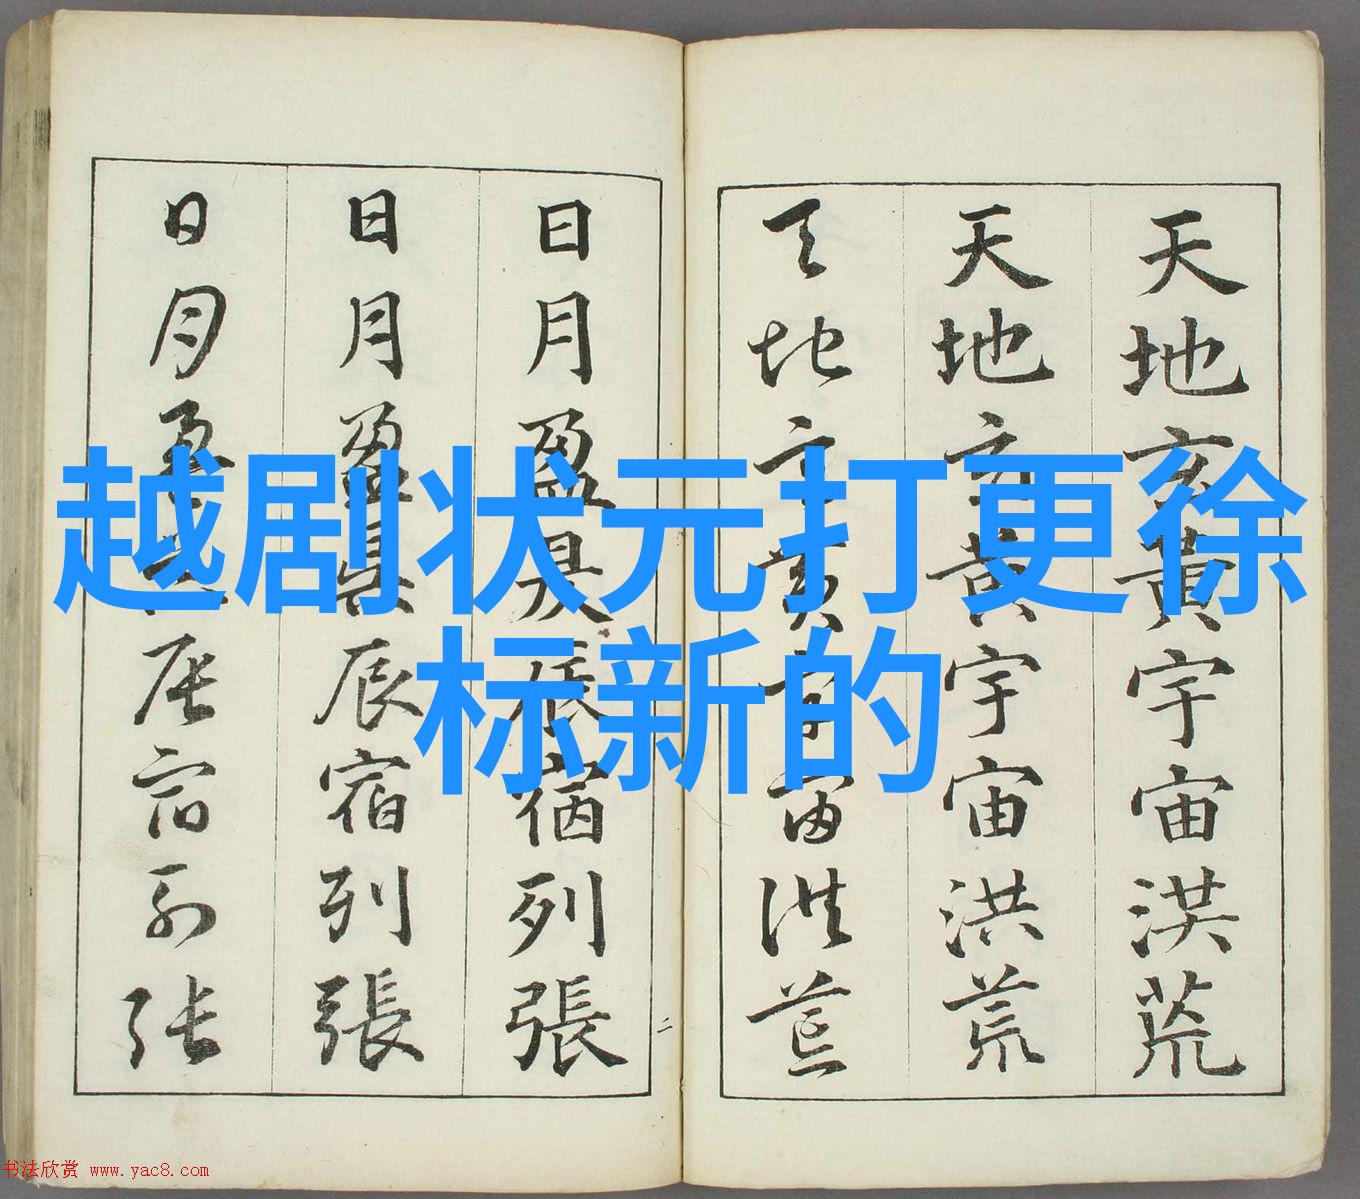 越剧状元打更徐
标新的
天地玄黄宇宙洪荒
天地玄黄宇宙洪荒
天地玄黄宇宙洪荒
日月盈昃辰宿列張
日月盈昃辰宿列張
日月盈昃辰宿列張
二
书法欣赏 www.yac8.com